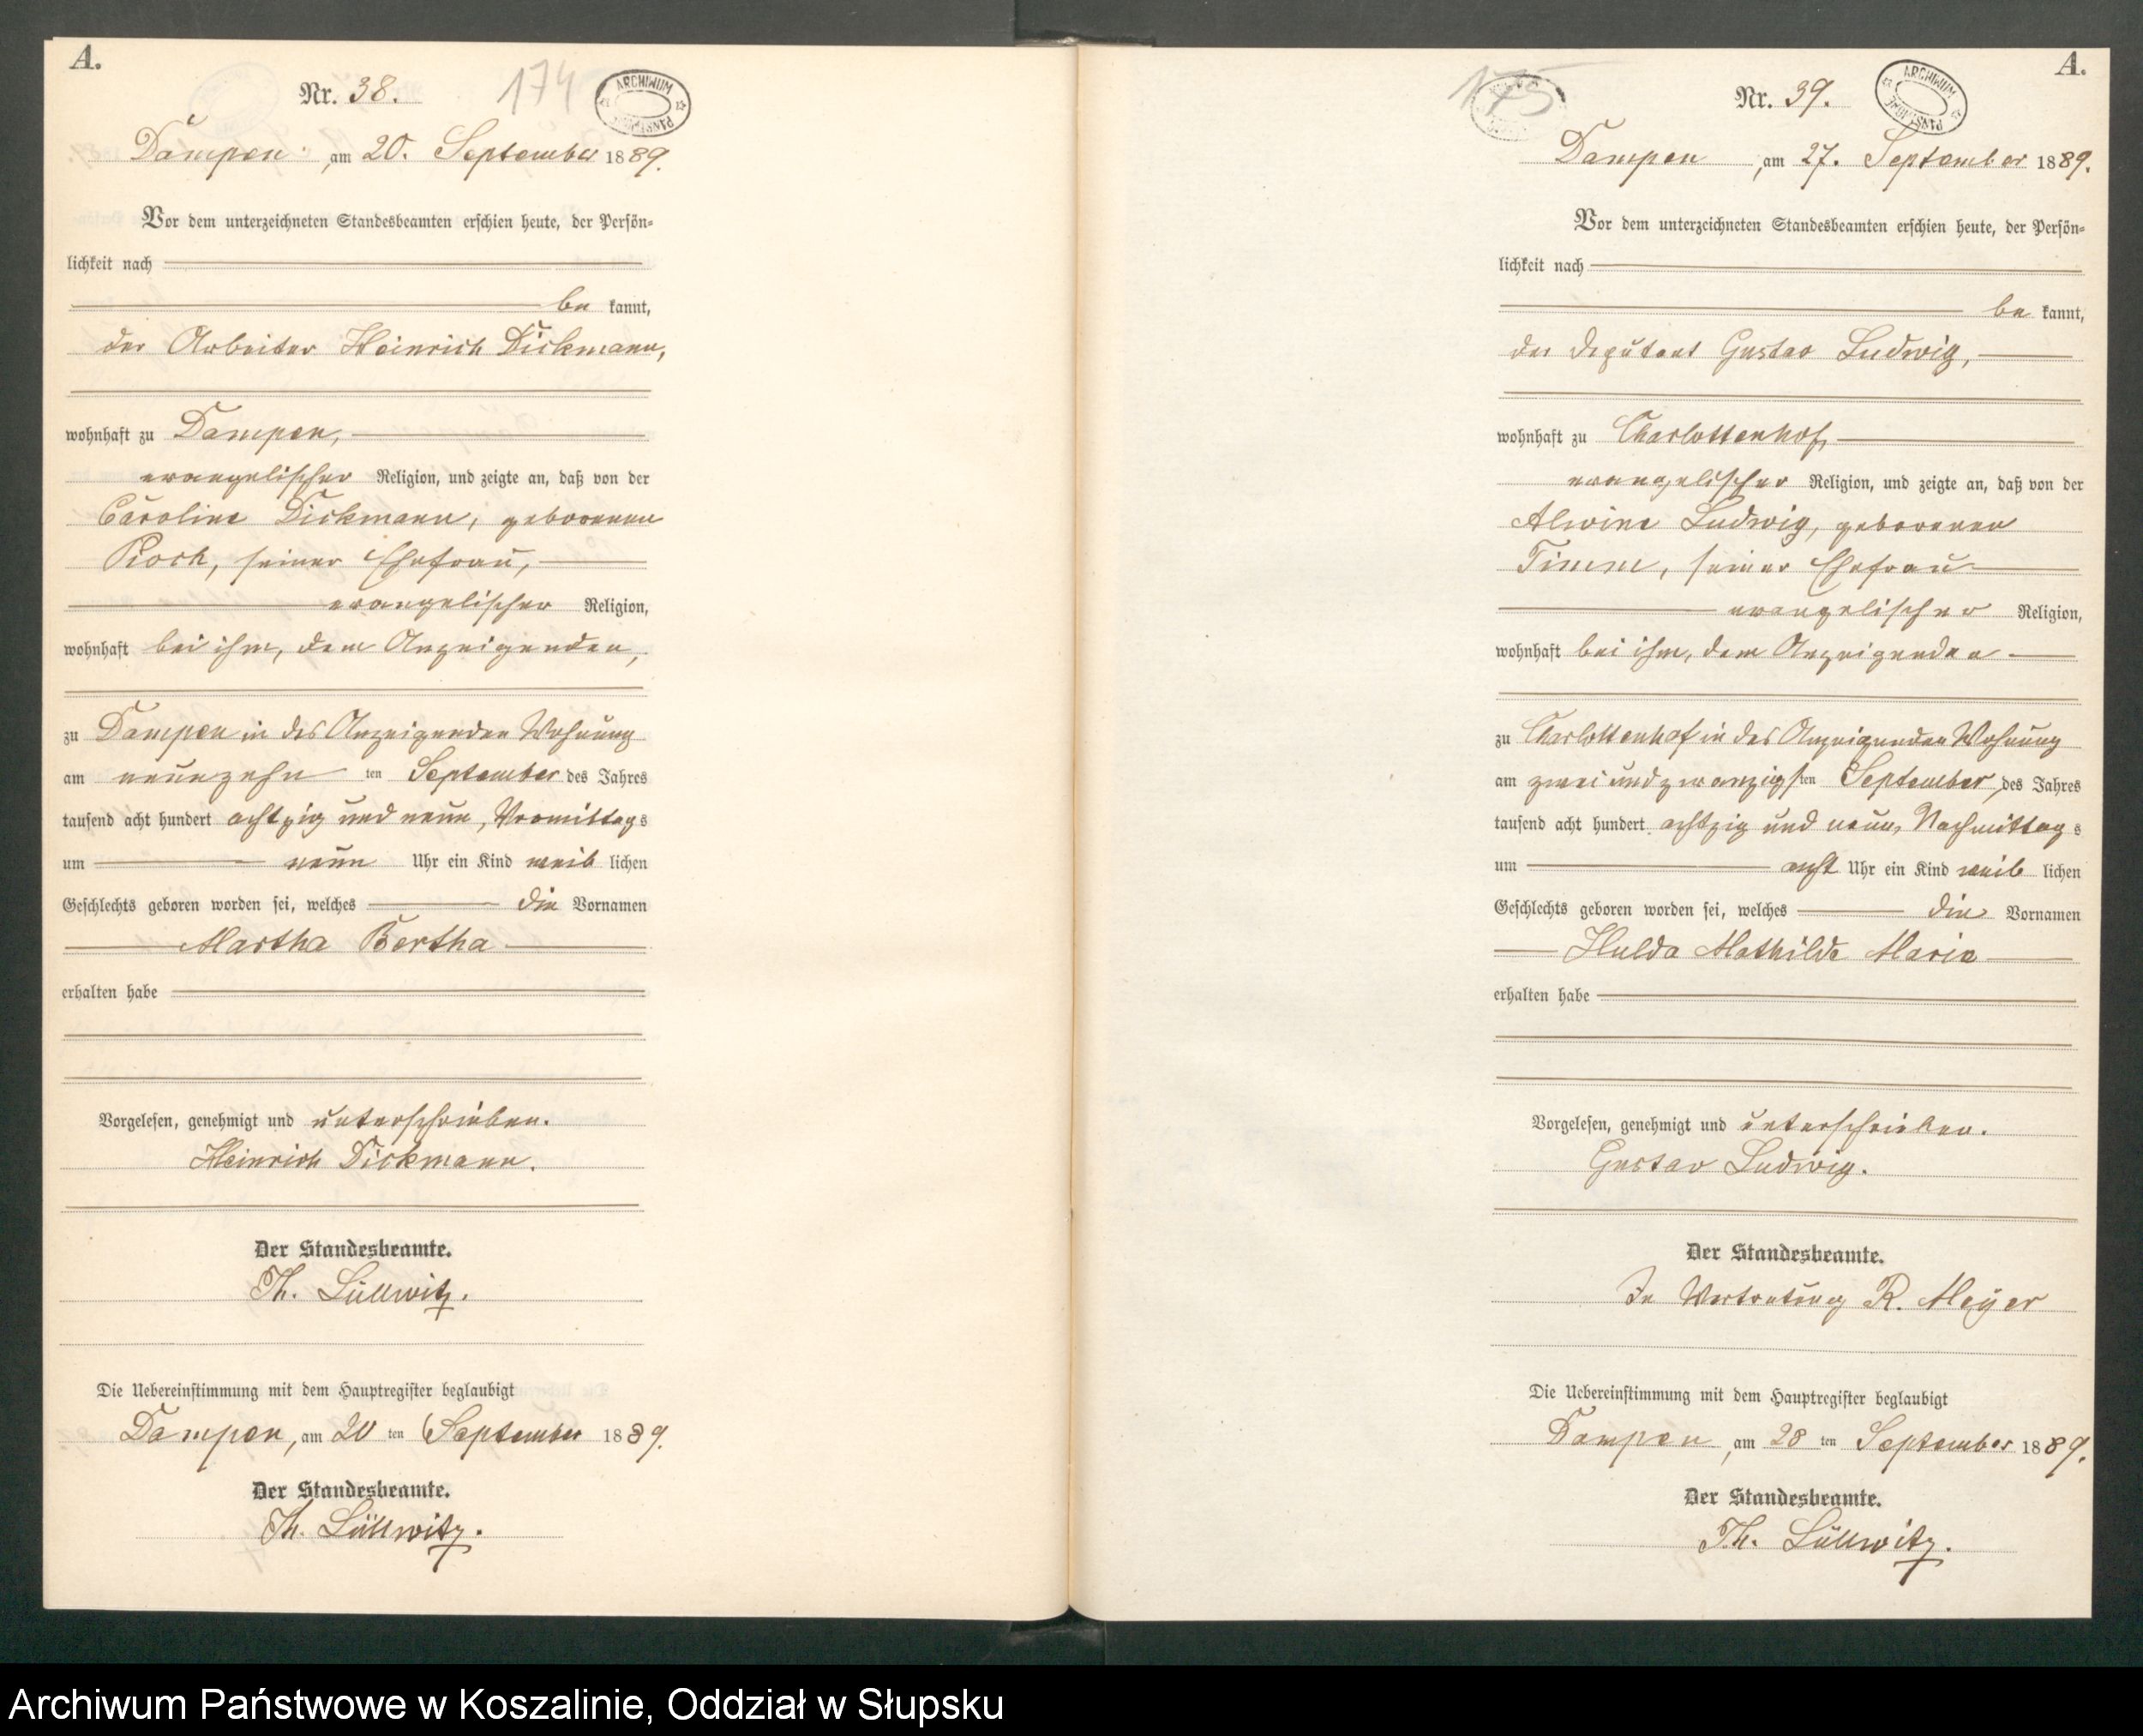 A.
Nr. 38.
174
ARCHIWUM
Dampen, am 20. September 1889.
Vor dem unterzeichneten Standesbeamten erschien heute, der Persön-
lichkeit nach
be kannt,
der Arbeiter Heinrich Dickmann,
wohnhaft zu Dampen,
evangelischer Religion, und zeigte an, daß von der
Caroline Dickmann, geborenen
Koch, seiner Ehefrau,
evangelischer Religion,
wohnhaft bei ihm, dem Anzeigenden,
zu Dampen in des Anzeigenden Wohnung
am neunzehn ten September des Jahres
tausend acht hundert achtzig und neun, Vormittags
um neun Uhr ein Kind weib lichen
Geschlechts geboren worden sei, welches die Vornamen
Martha Bertha
erhalten habe
Vorgelesen, genehmigt und unterschrieben.
Heinrich Dickmann.
Der Standesbeamte.
Th. Lüllwitz.
Die Uebereinstimmung mit dem Hauptregister beglaubigt
Dampen, am 20 ten September 1889.
Der Standesbeamte.
Th. Lüllwitz.
A.
175
Nr. 39.
ARCHIWUM
Dampen, am 27. September 1889.
Vor dem unterzeichneten Standesbeamten erschien heute, der Persön-
lichkeit nach
be kannt,
der Deputant Gustav Ludwig,
wohnhaft zu Charlottenhof,
evangelischer Religion, und zeigte an, daß von der
Alwine Ludwig, geborenen
Timm, seiner Ehefrau
evangelischer Religion,
wohnhaft bei ihm, dem Anzeigenden
zu Charlottenhof in des Anzeigenden Wohnung
am zwei und zwanzigsten September des Jahres
tausend acht hundert achtzig und neun, Nachmittags
um acht Uhr ein Kind weib lichen
Geschlechts geboren worden sei, welches die Vornamen
Hulda Mathilde Marie
erhalten habe
Vorgelesen, genehmigt und unterschrieben.
Gustav Ludwig.
Der Standesbeamte.
In Vertretung R. Meyer
Die Uebereinstimmung mit dem Hauptregister beglaubigt
Dampen, am 28 ten September 1889.
Der Standesbeamte.
Th. Lüllwitz.
Archiwum Państwowe w Koszalinie, Oddział w Słupsku